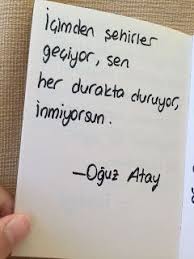 İçimden şehirler
geçiyor, sen
her durakta duruyor,
inmiyorsun.
—Oğuz Atay